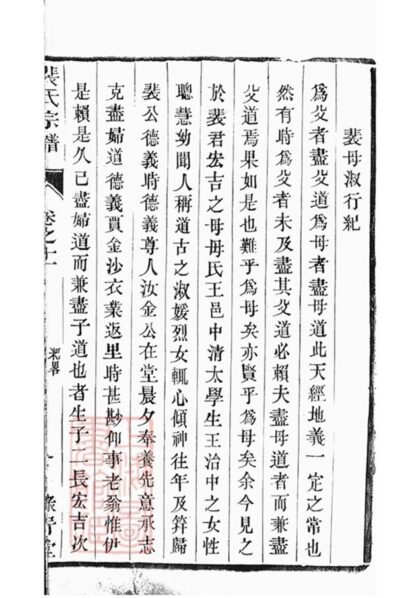 裴母淑行紀
為父者盡父道為母者盡母道此天經地義一定之常也
然有時為父者未及盡其父道必賴夫盡母道者而兼盡
父道焉果如是也難乎為母矣亦賢乎為母矣余今見之
於裴君宏吉之母母氏王邑中清太學生王治中之女性
聰慧幼聞人稱道古之淑媛烈女輒心傾神往年及笄歸
裴公德義時德義尊人汝金公在堂晨夕奉養先意承志
克盡婦道德義賈金沙衣業返里時甚尠仰事老翁惟伊
是賴是久已盡婦道而兼盡子道也者生子二長宏吉次
裴氏宗譜
卷之十一
紀畧